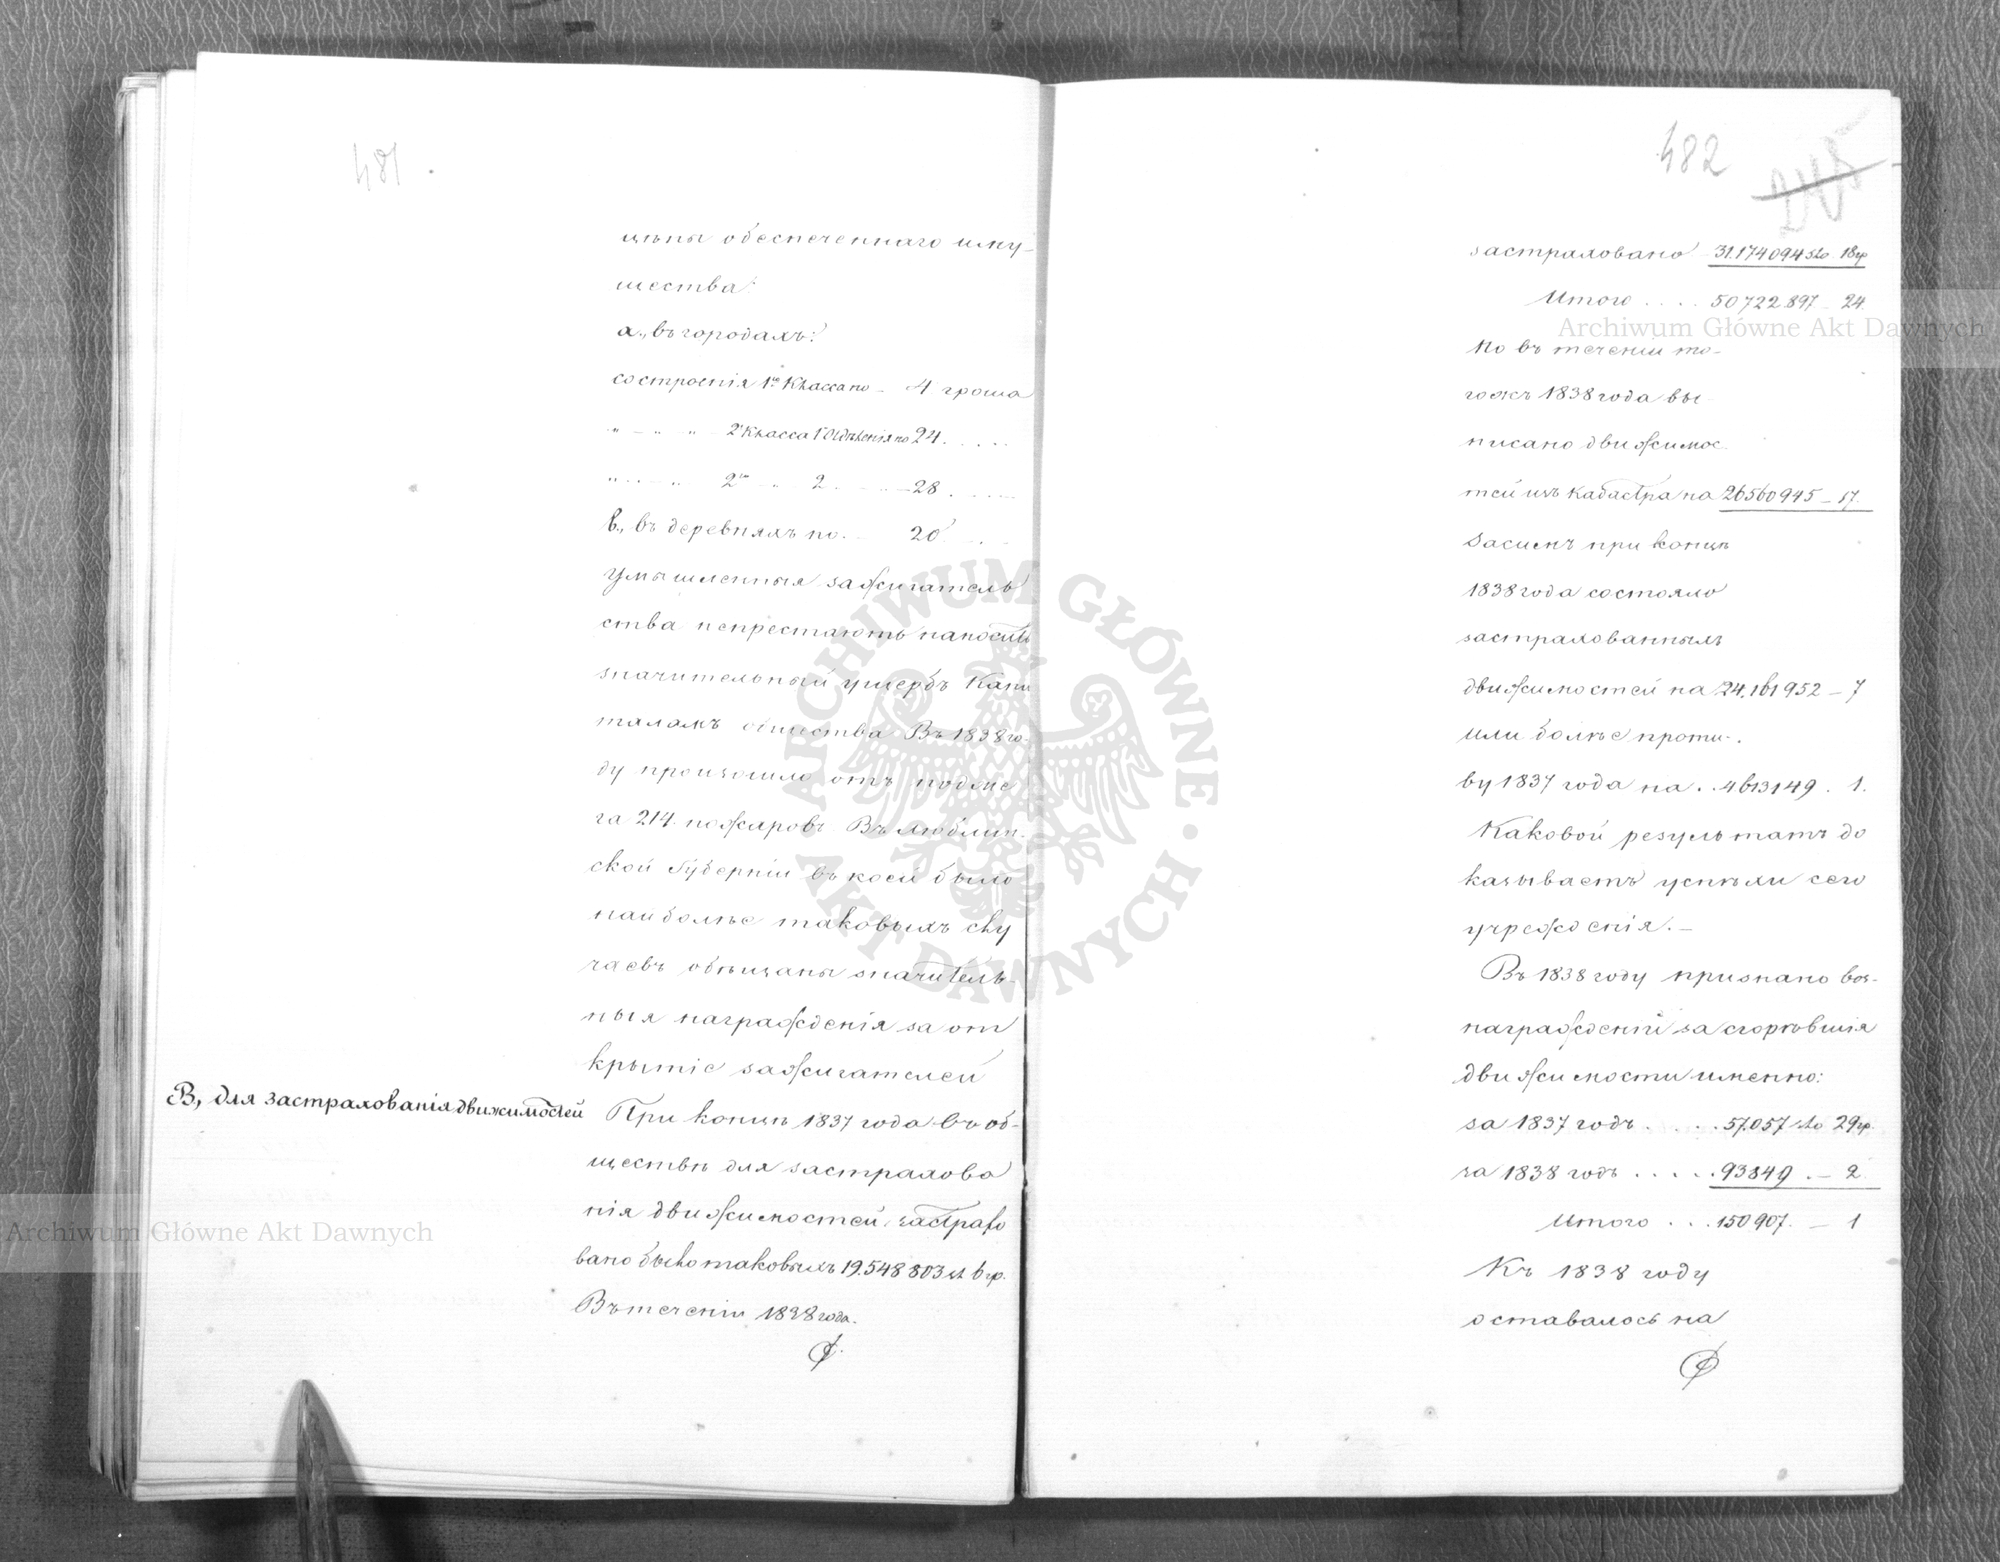 481.
цѣны обеспеченнаго иму-
щества:
а., въ городахъ:
со строенія 1го Класса по - 4 гроша
" - " - " - 2 Класса 1 Отдѣленія по 24. . . . .
" - " - 2го " 2 - " - 28 . . . .
b., въ деревняхъ по. - 20 . - . -
Умышленныя зажигатель
ства непрестаютъ наносить
значительный ущербъ Капи
таламъ общества Въ 1838 го-
ду произошло отъ поджо
га 214 пожаровъ Въ Люблин-
ской Губерніи въ коей было
наиболѣе таковыхъ слу
чаевъ обѣщаны значитель-
ныя награжденія за от
крытіе зажигателей
В, для застрахованія движимостей
При концѣ 1837 года въ об-
ществѣ для застрахова
нія движимостей, застрахо
вано было таковыхъ 19.548 803 зл. 6 гр.
Въ теченіи 1838 года.
482
застраховано 31.174 094 зло 18 гр
Итого . . . . 50 722 897 - 24
Но въ теченіи то-
гожъ 1838 года вы-
писано движимос-
тей изъ кадастра на 26560945 - 17.
Засимъ при концѣ
1838 года состояло
застрахованныхъ
движимостей на 24,161 952 - 7
или болѣе проти-
ву 1837 года на . . 4613149 . 1.
Каковой результатъ до
казываетъ успѣхи сего
учрежденія. -
Въ 1838 году признано воз-
награжденій за сгорѣвшія
движимости именно:
за 1837 годъ . . . . 57.057 зло 29 гр.
за 1838 годъ . . . . . 93849 . - 2.
Итого . . . 150 907. - 1
Къ 1838 году
оставалось на
Archiwum Główne Akt Dawnych
Archiwum Główne Akt Dawnych
ARCHIWUM GŁÓWNE AKT DAWNYCH